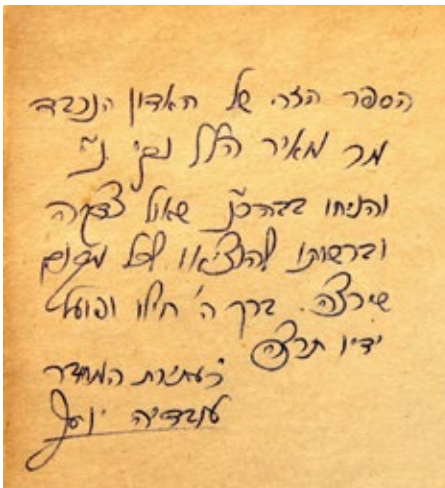 הספר הזה של האדון הנכבד
מר מאיר הלל נ"י
והניחו בבהכ"נ שאול צדקה
וברשותו להוציאו לכל מקום
שירצה. ברך ה' חילו ופועל
ידיו תרצה
כעתירת המחבר
עובדיה יוסף